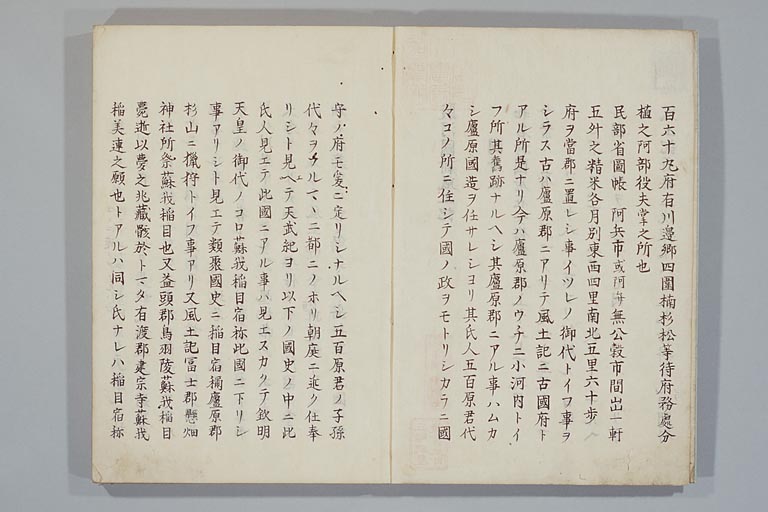 百六十丸府右川邉郷四圍楠杉松等待府務處分
植之阿部役夫掌之所也
民部省圖帳 阿兵市或阿毎無公穀市間出一軒
五升之精米各月別東西四里南北五里六十歩
府ヲ當郡ニ置レシ事イツレノ御代トイフ事ヲ
シラス古ハ廬原郡ニアリテ風土記ニ古國府ト
アル所是ナリ今ハ廬原郡ノウチニ小河内トイ
フ所其舊跡ナルヘシ其廬原郡ニアル事ハムカ
シ廬原國造ヲ任サレシヨリ其氏人五百原君代
々コノ所ニ住シテ國ノ政ヲモトリシカラニ國
守ノ府モ爰ニ定リシナルヘシ五百原君ノ子孫
代々ヲヲルマヽニ都ニノホリ朝庭ニ近ク仕奉
リシト見ヘテ天武紀ヨリ以下ノ國史ノ中ニ此
氏人見エテ此國ニアル事ハ見エスカクテ欽明
天皇ノ御代ノコロ蘇我稲目宿祢此國ニ下リシ
事アリシト見エテ類聚國史ニ稲目宿祢廬原郡
杉山ニ獵狩トイフ事アリ又風土記冨士郡懸畑
神社所祭蘇我稲目也又益頭郡鳥羽陵蘇我稲目
薨逝以夢之兆藏骸於トマタ有渡郡建宗寺蘇我
稲美連之願也トアルハ同シ氏ナレハ稲目宿祢